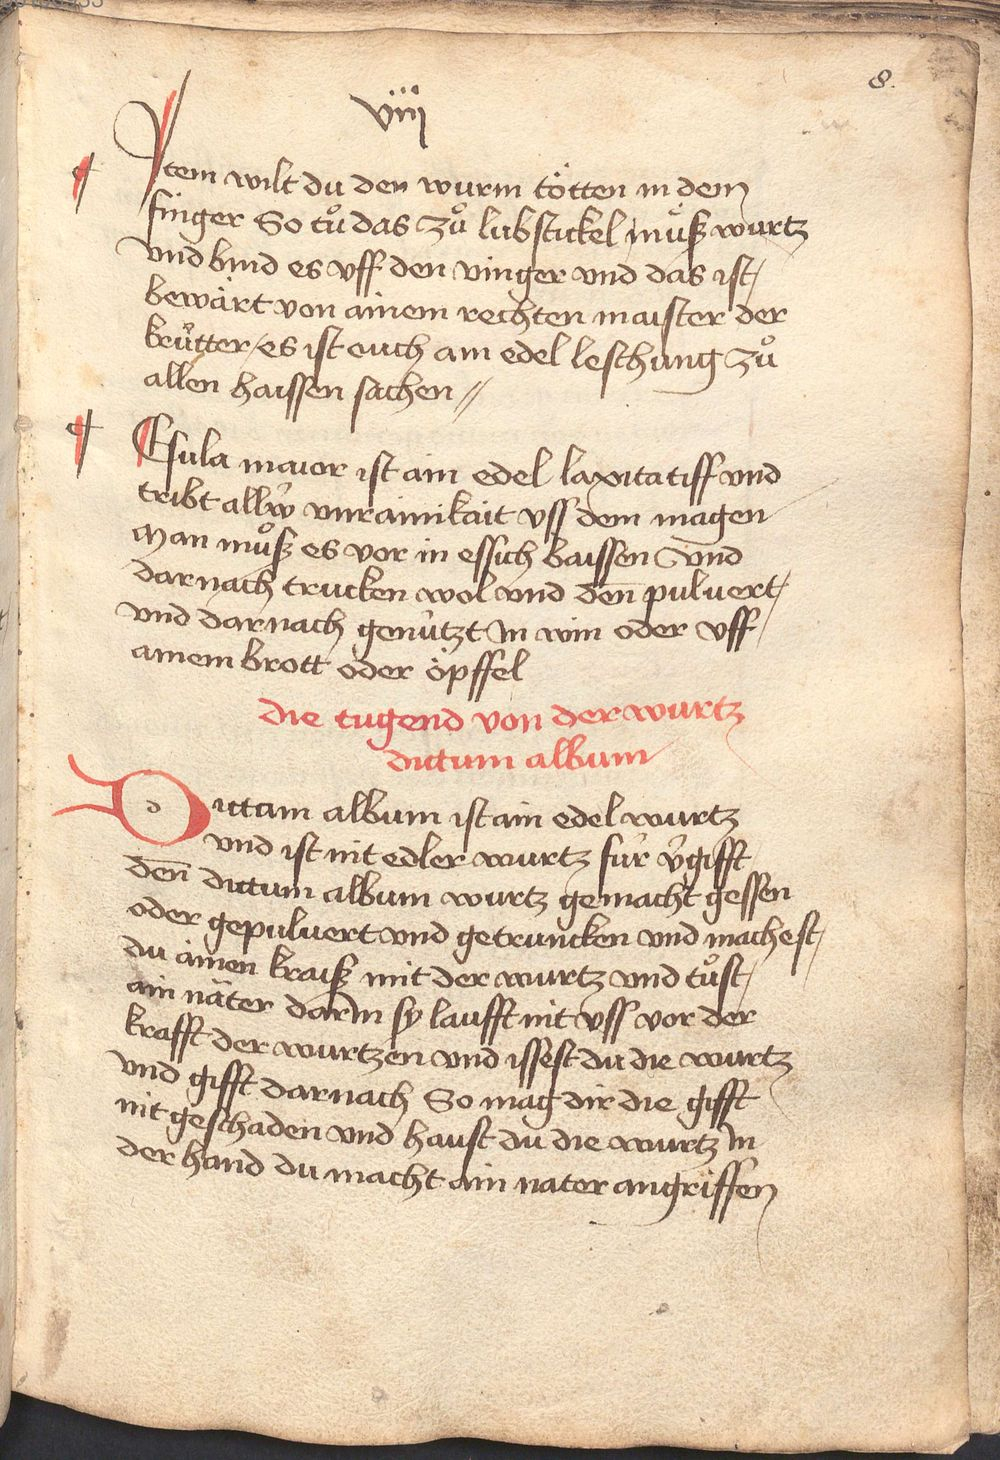 8.
viij
¶ Item wilt du den wurm tötten in dem
finger So tuͦ das zuͦ lubstickel muͦß wurtz
vnd bind es vff den vinger vnd das ist
bewärt von ainem rechten maister der
krütter / es ist ouch ain edel leschung zuͦ
allen haissen sachen //
¶ Esula maior ist ain edel laxitatiff vnd
tribt allw̋ vnrainikait vss dem magen
Man muͦß es vor in essich baissen vnd
darnach trucken wol vnd den̄ puluert
vnd darnach genützt In win oder vff
ainem brott oder öpffel
die tugend von der wurtz
dictum album
Dictam album ist ain edel wurtz
vnd ist nit edler wurtz für v̾gifft
den̄ dictum album wurtz gemacht gessen
oder gepuluert vnd getruncken vnd machest
du ainen kraiß mit der wurtz vnd tuͦst
ain näter darIn sy laufft nit vss vor der
krafft der wurtzen vnd issest du die wurtz
vnd gifft darnach So mag dir die gifft
nit geschaden vnd haust du die wurtz In
der hand du macht ain nater angriffen